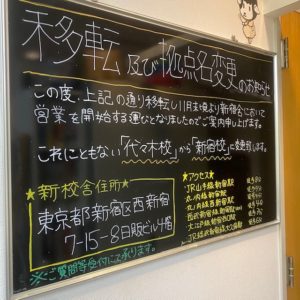 移転及び拠点名変更のお知らせ
この度、上記の通り移転し11月末頃より新宿舎において
営業を開始する運びとなりましたのでご案内申し上げます。
これにともない「代々木校」から「新宿校」に変更致します。
★新校舎住所★
東京都新宿区西新宿
7-15-8日販ビル4階
※ご質問等受付にて承ります。
★アクセス★
JR山手線新宿駅
丸ノ内線新宿駅
丸ノ内線西新宿駅
西武新宿線新宿駅
大江戸線新宿西口駅